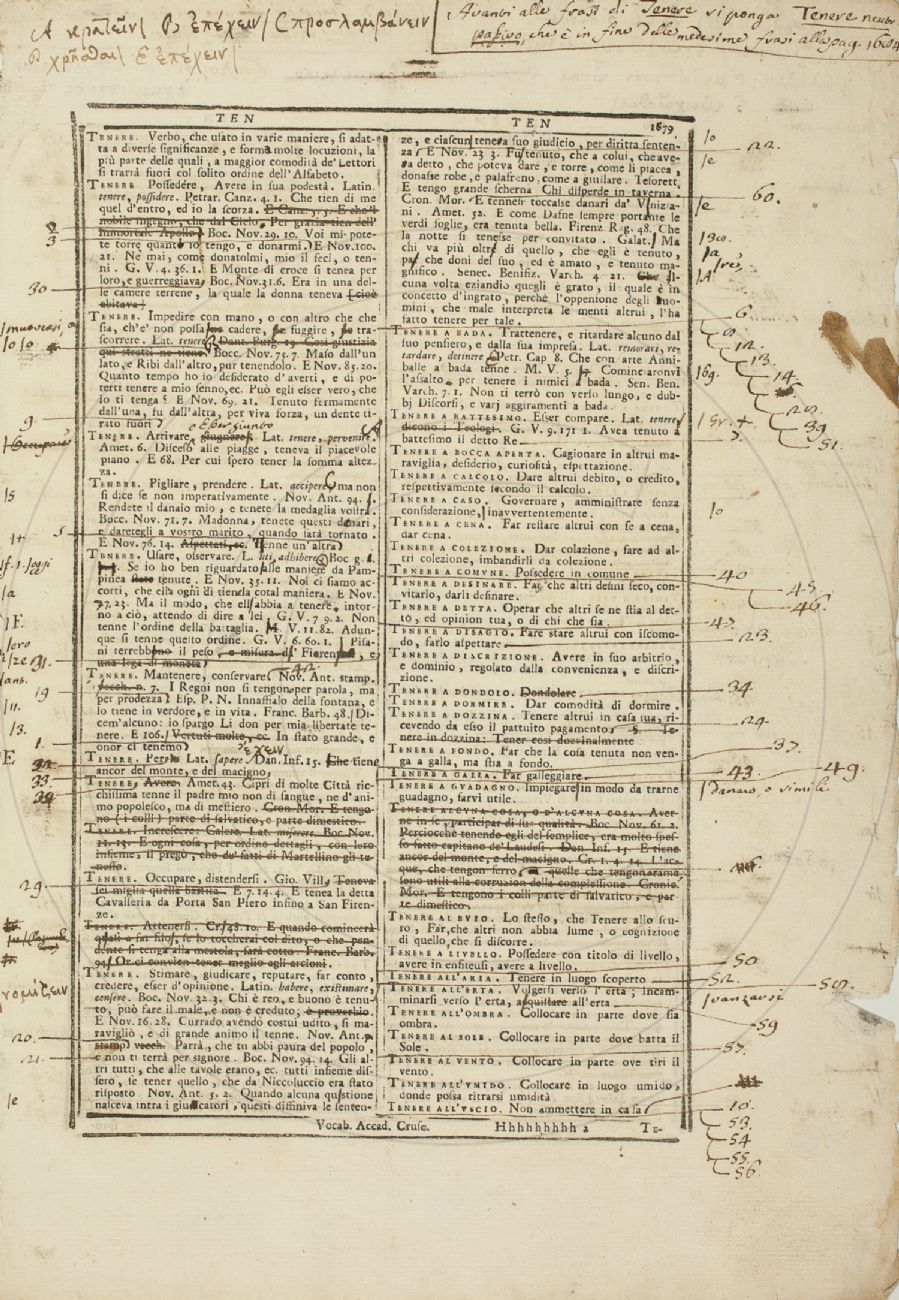 A κρατεῖν/ B ἐπέχειν/ C προσλαμβάνειν/
D χρῆσθαι/ E ἐπέχειν/
Avanti alle frasi di Tenere si ponga Tenere neutr.
passivo, che è in fine delle medesime frasi alla pag. 1684
TEN
TEN
1679
TENERE. Verbo, che usato in varie maniere, si adat-
ta a diverse significanze, e forma molte locuzioni, la
più parte delle quali, a maggior comodità de' Lettori
si trarrà fuori col solito ordine dell'Alfabeto.
TENERE. Possedére, Avere in sua podestà. Latin.
tenere, possidere. Petrar. Canz. 4. 1. Che tien di me
quel d'entro, ed io la scorza. E Canz. 5. 7. E che'l
nobile ingegno, che dal Cielo, Per grazia tien dell'
immortale Apollo. Boc. Nov. 29. 10. Voi mi pote-
te torre quanto io tengo, e donarmi. E Nov. 100.
21. Nè mai, come donatolmi, mio il feci, o ten-
ni. G. V. 4. 36. 1. E Monte di croce si tenea per
loro, e guerreggiava. Boc. Nov. 31. 6. Era in una del-
le camere terrene, la quale la donna teneva [cioè
abitava]
TENERE. Impedire con mano, o con altro che che
sia, ch'e' non possa cadere, fuggire, tra-
scorrere. Lat. tenere. Dant. Purg. 19. Così giustizia
qui stretti ne tiene. Bocc. Nov. 75. 7. Maso dall'un
lato, e Ribi dall'altro, pur tenendolo. E Nov. 85. 20.
Quanto tempo ho io desiderato d'averti, e di po-
terti tenere a mio senno, ec. Può egli esser vero, che
io ti tenga? E Nov. 69. 21. Tenuto fermamente
dall'una, fu dall'altra, per viva forza, un dente ti-
rato fuori
o Esser giunto
TENERE. Arrivare, Lat. tenere, pervenire.
Amet. 6. Disceso alle piagge, teneva il piacevole
piano. E 68. Per cui spero tener la somma altez-
za.
TENERE. Pigliare, prendere. Lat. accipere, ma non
si dice se non imperativamente. Nov. Ant. 94. 1.
Rendete il danaio mio, e tenete la medaglia vostra.
Bocc. Nov. 71. 7. Madonna, tenete questi danari,
e daretegli a vostro marito, quando sarà tornato.
E Nov. 76. 14. Aspettati, ec. Tenne un'altra
TENERE. Usare, osservare. L. uti, adhibere. Boc g.
Se io ho ben riguardato alle maniere da Pam-
pinea tenute. E Nov. 35. 11. Noi ci siamo ac-
corti, che ella ogni dì tiene la cotal maniera. E Nov.
77. 23. Ma il modo, che ella abbia a tenere, intor-
no a ciò, attendo di dire a lei. G. V. 7 9. 2. Non
tenne l'ordine della battaglia. M. V. 11. 82. Adun-
que si tenne questo ordine. G. V. 6. 60. 1. Pisa-
ni terrebbono il peso, e misura di' Fiorentini, e
una lega di moneta
TENERE. Mantenere, conservare. Nov. Ant. stamp.
vecch. n. 7. I Regni non si tengono per parola, ma
per prodezza. Esp. P. N. Innaffialo della fontana, e
lo tiene in verdore, e in vita. Franc. Barb. 48. Di-
cem'alcuno: io spargo Li don per mia libertate te-
nere. E 106. Vertuti molte, ec. In stato grande, e
onor ci tenemo
ἔχειν
TENERE. Per Lat. sapere. Dan. Inf. 15. Che tiene
ancor del monte, e del macigno
TENERE. Avere. Amet. 43. Ciprì di molte Città ric-
chissima tenne il padre mio non di sangue, nè d'ani-
mo popolesco, ma di mestiero. Cron Mor. E tengo-
no (i colli) parte di salvatico, e parte dimestico.
TENERE. Increscere: Calere. Lat. miserere. Boc Nov.
11. 13. E ogni cosa, per ordine dettagli, con loro
insieme, il pregò, che de' fatti di Martellino gli te-
nesse.
TENERE. Occupare, distendersi. Gio. Vill. Teneva
sei miglia quella bastita. E 7. 14. 4. E tenea la detta
Cavalleria da Porta San Piero infino a San Firen-
ze.
TENERE. Attenersi. Cr. 48. 10. E quando comincerà
quasi a far filo, se lo toccherai col dito, o che pen-
dente si tenga alla mestola, sarà cotto. Franc. Barb.
94. Or ci convien tener meglio agli arcioni.
TENERE. Stimare, giudicare, reputare, far conto,
credere, esser d'opinione. Latin. habere, existimare,
censere. Boc. Nov. 32. 3. Chi è reo, e buono è tenu-
to, può fare il male, e non è creduto; è proverbio.
E Nov. 16. 28. Currado avendo costui udito, si ma-
ravigliò, e di grande animo il tenne. Nov. Ant.
stamp. vecch. Parrà, che tu abbi paura del popolo,
e non ti terrà per signore. Boc. Nov. 94. 14. Gli al-
tri tutti, che alle tavole erano, ec. tutti insieme dis-
sero, se tener quello, che da Niccoluccio era stato
risposto. Nov. Ant. 5. 2. Quando alcuna quistione
nasceva intra i giudicatori, questi diffiniva le senten-
ze, e ciascun tenea suo giudicio, per diritta senten-
za. E Nov. 23 3. Fu tenuto, che a colui, che ave-
va detto, che poteva dare, e torre, come li piacea,
donasse robe, e palafreno, come a giullare. Tesorett.
E tengo grande scherna Chi disperde in taverna.
Cron. Mor. E tennesi toccasse danari da' Viniziа-
ni. Amet. 52. E come Dafne sempre portante le
verdi foglie, era tenuta bella. Firenz. Rag. 48. Che
la notte si tenesse per convitato. Galat. Ma
chi va più oltre di quello, che egli è tenuto,
pa che doni del suo, ed è amato, e tenuto ma-
gnifico. Senec. Benifiz. Varch. 4 21. Che Al-
cuna volta eziandio quegli è grato, il quale è in
concetto d'ingrato, perchè l'oppenione degli uo-
mini, che male interpreta le menti altrui, l'ha
fatto tenere per tale.
TENERE A BADA. Trattenere, e ritardare alcuno dal
suo pensiero, e dalla sua impresa. Lat. remorari, re-
tardare, detinere. Petr. Cap 8. Che con arte Anni-
balle a bada tenne. M. V. 5. Cominciaronvi
l'assalto per tenere i nimici a bada. Sen. Ben.
Varch. 7. 1. Non ti terrò con verso lungo, e dub-
bj Discorsi, e varj aggiramenti a bada.
TENERE A BATTESIMO. Esser compare. Lat. tenere
dicono i Teologi. G. V. 9. 171 1. Avea tenuto a
battesimo il detto Re
TENERE A BOCCA APERTA. Cagionare in altrui ma-
raviglia, desiderio, curiosità, espettazione.
TENERE A CALCOLO. Dare altrui debito, o credito,
respettivamente secondo il calcolo.
TENERE A CASO. Governare, amministrare senza
considerazione, inavvertentemente.
TENERE A CENA. Far restare altrui con se a cena,
dar cena.
TENERE A COLEZIONE. Dar colazione, fare ad al-
tri colezione, imbandirli da colezione.
TENERE A COMUNE. Possedere in comune
TENERE A DESINARE. Far che altri desini seco, con-
vitarlo, darli desinare.
TENERE A DETTA. Operar che altri se ne stia al det-
to, ed opinion tua, o di chi che sia.
TENERE A DISAGIO. Fare stare altrui con iscomo-
do, farlo aspettare
TENERE A DISCREZIONE. Avere in suo arbitrio,
e dominio, regolato dalla convenienza, e discri-
zione.
TENERE A DONDOLO. Dondolare
TENERE A DORMIRE. Dar comodità di dormire.
TENERE A DOZZINA. Tenere altrui in casa sua, ri-
cevendo da esso il pattuito pagamento. §. Te-
nere in dozzina: Tener così dozzinalmente
TENERE A FONDO. Far che la cosa tenuta non ven-
ga a galla, ma stia a fondo.
TENERE A GALLA. Far galleggiare.
TENERE A GUADAGNO. Impiegare in modo da trarne
guadagno, farvi utile.
TENERE ALCUNA COSA, O D'ALCUNA COSA. Aver-
ne in se, participar di sua qualità. Boc. Nov. 61. 2.
Perciocchè tenendo egli del semplice, era molto spes-
so fatto capitano de' Laudesi. Dan. Inf. 15. E tiene
ancor del monte, e del macigno. Cr. 1. 4. 14. L'ac-
que, che tengon ferro, quelle che tengon rame,
sono utili alla corruzion della complessione. Cronic.
Mor. E tengono i colli parte di salvatico, e par-
te dimestico
TENERE AL BUIO. Lo stesso, che Tenere allo scu-
ro, Far, che altri non abbia lume, o cognizione
di quello, che si discorre.
TENERE A LIVELLO. Possedere con titolo di livello,
avere in enfiteusi, avere a livello.
TENERE ALL'ARIA. Tenere in luogo scoperto
TENERE ALL'ERTA. Volgersi verso l'erta; Incam-
minarsi verso l'erta, acquistare all'erta
TENERE ALL'OMBRA. Collocare in parte dove sia
ombra.
TENERE AL SOLE. Collocare in parte dove batta il
Sole.
TENERE AL VENTO. Collocare in parte ove tiri il
vento.
TENERE ALL'UMIDO. Collocare in luogo umido,
donde possa ritrarsi umidità
TENERE ALL'USCIO. Non ammettere in casa
Vocab. Accad. Crusc.
Hhhhhhhhh 2
TE-
2
3
30
9.
5
31.
42.
19
1.
33
29.
νομίζειν
20.
21.
22.
60.
6
9
12.
13.
14.
20.
39
51.
40
45.
46.
47.
23.
34
24
37.
43.
49.
danaro, o simile
50
52.
58.
avanzarsi
59
57.
10.
53.
54
55.
56.